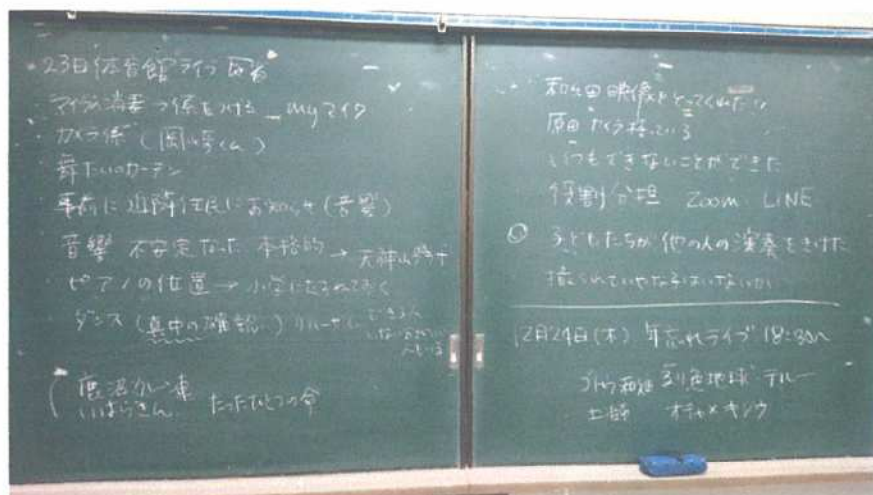 ・23日体育館ライブ 反省
マイク消毒→係をつける myマイク
カメラ係（岡崎くん）
舞たいのカーテン
事前に近隣住民にお知らせ（音響）
音響 不安定なった 本格的→天神山
ピアノの位置→小学にたずねておく
ダンス（真中の確認）リハーサル できる人
鹿沼カレー
いばらきん たったひとつの命
和田 映像をとってくれた!!
原田 カメラ持っている
いつもできないことができた
役割分担 Zoom LINE
子どもたちが他の人の演奏をきけた
撮られていやな子はいないか
12月24日(木) 年忘れライブ 18:30〜
地球 テルー